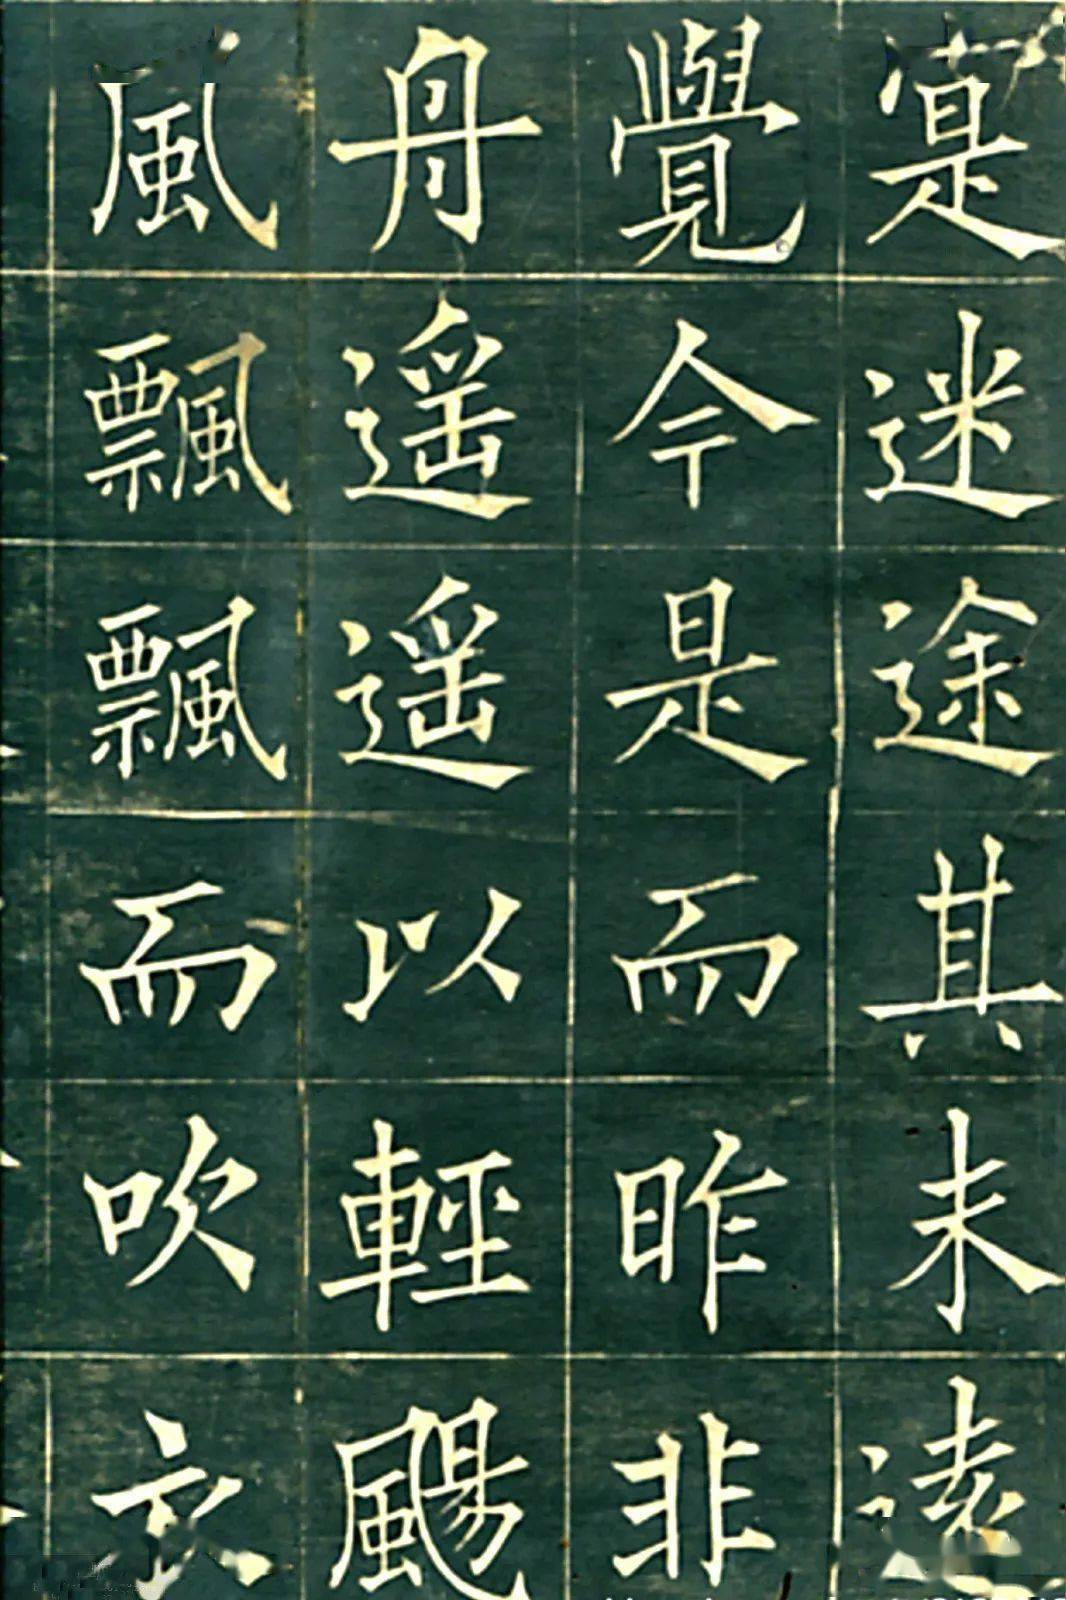 寔迷途其未遠
覺今是而昨非
舟遥遥以輕颺
風飄飄而吹衣